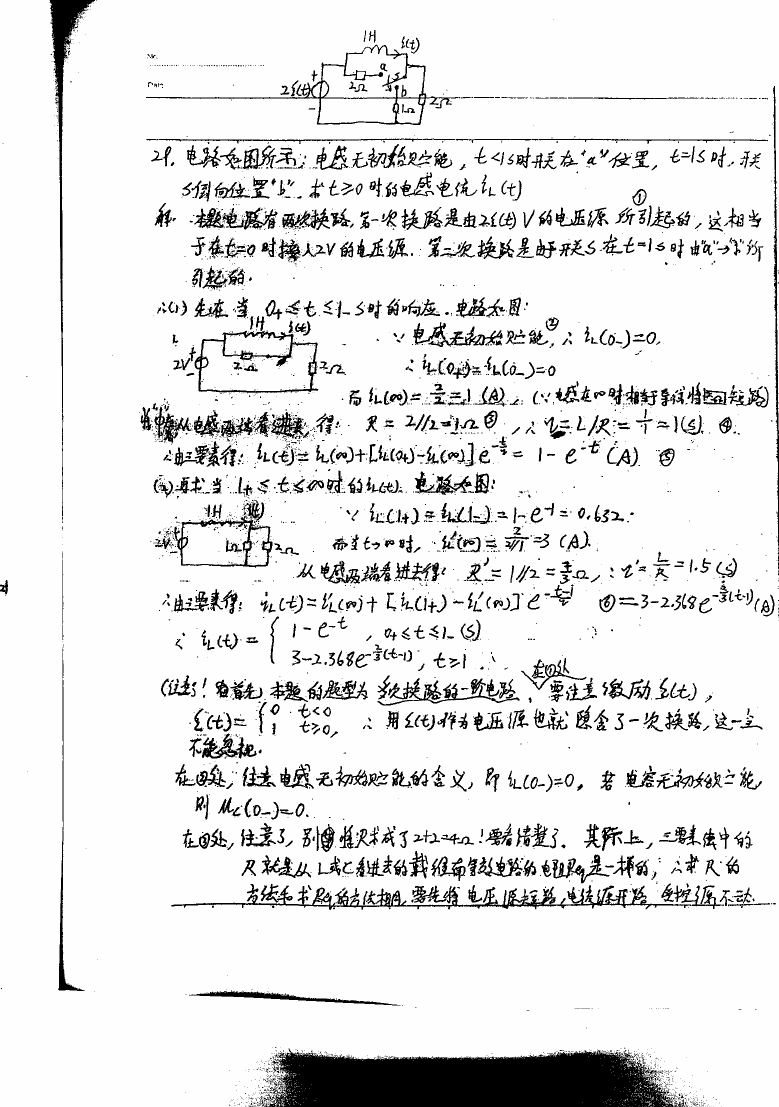 No.
Date
1H i(t)
a
2Ω
b
2ε(t)
1Ω
2Ω
29. 电路如图所示: 电感无初始贮能, t<1s时开关在"a"位置, t=1s时, 开关
S倒向位置"b". 求t≥0时的电感电流iL(t)
解: 本题电路有两次换路, 第一次换路是由2ε(t)V的电压源①所引起的, 这相当
于在t=0时接入2V的电压源. 第二次换路是由于开关S在t=1s时由"a"→"b"所
引起的.
∴(1) 先在当 0+≤t≤1- s时的响应. 电路如图:
1H i(t)
2V
2Ω
2Ω
∵电感无初始贮能②, ∴iL(0-)=0,
∴iL(0+)=iL(0-)=0
而iL(∞)=2/2=1(A), (∵电感在∞时相当于导线将短路)
从电感两端看进去, 得: R=2//2=1Ω③, ∴τ=L/R=1/1=1(s) ④
∴由三要素得: iL(t)=iL(∞)+[iL(0+)-iL(∞)]e^(-t/τ)=1-e^(-t) (A) ⑤
(2) 再求当 1+≤t≤∞时的iL(t). 电路如图:
1H
2V
1Ω
2Ω
∵iL(1+)=iL(1-)=1-e^-1=0.632.
而当t→∞时, iL'(∞)=2/(2//1)=3 (A).
从电感两端看进去得: R'=1//2=2/3Ω, ∴τ'=L/R=1.5(s)
∴由三要素得: iL(t)=iL'(∞)+[iL(1+)-iL'(∞)]e^(-(t-1)/τ') ⑥=3-2.368e^(-2/3(t-1)) (A)
∴iL(t)={1-e^-t , 0+≤t≤1- (S)
3-2.368e^(-2/3(t-1)), t≥1.
(注意了! 首先, 本题的题型为多次换路的一阶电路, 在①处要注意激励ε(t),
ε(t)={0 t<0
1 t≥0, ∴用ε(t)作为电压源也就隐含了一次换路, 这一点
不能忽视.
在②处, 注意电感无初始贮能的含义, 即iL(0-)=0, 若电容无初始贮能,
则uC(0-)=0.
在③处, 注意了, 别将R求成了2+2=4Ω! 要看清楚了. 其实际上, 三要素法中的
R就是从L或C看进去的戴维南等效电路的电阻Req是一样的, ∴求R的
方法和求Req的方法相同, 要先将电压源短路, 电流源开路, 受控源不动.